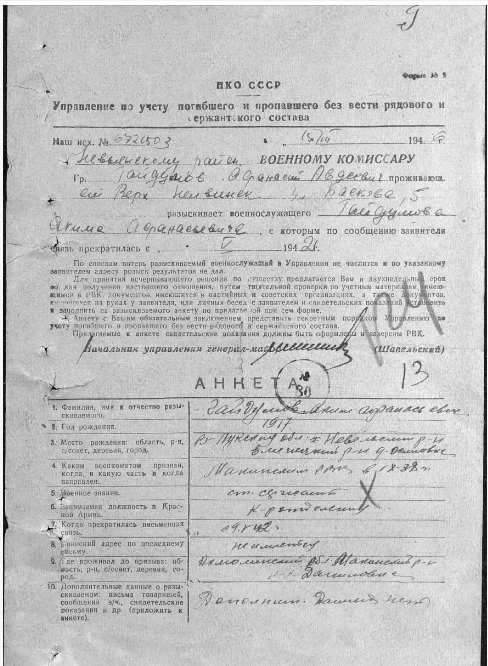 9
Форма № 8
НКО СССР
Управление по учету погибшего и пропавшего без вести рядового и
сержантского состава
Наш исх. № 672503 194
Невьянскому район. ВОЕННОМУ КОМИССАРУ
Гр. Гайдуков Афанасий Авдеевич проживающ.
Верх Нейвинск ул. Баскова, 5
разыскивает военнослужащего
Акима Афанасьевича, с которым по сообщению заявителя
связь прекратилась с V 1942г.
По спискам потерь разыскиваемый военнослужащий в Управлении не числится и по указанному
заявителем адресу розыск результатов не дал.
Для принятия исчерпывающего решения по существу предлагается Вам в двухнедельный срок
со дня получения настоящего отношения, путем тщательной проверки по учетным материалам, имею-
щимся в РВК, документов, имеющихся в партийных и советских организациях, а также документов,
имеющихся на руках у заявителя, или личных бесед с заявителем и свидетельских показаний
и заполнить на разыскиваемого анкету по прилагаемой при сем форме.
Анкету с Вашим обязательным заключением представить секретным порядком Управлению по
учету погибшего и пропавшего без вести рядового и сержантского состава.
Прилагаемые к анкете свидетельские показания должны быть оформлены и заверены РВК.
Начальник управления генерал-майор (Шавельский)
124
13
№
30
АНКЕТА
1. Фамилия, имя и отчество разы-
скиваемого.
Аким Афанасьевич
2. Год рождения.
1917
3. Место рождения: область, р-н,
с/совет, деревня, город.
В-Лукская обл.
4. Каким военкоматом призван,
когда, в какую часть и когда
направлен.
Макинским РВК в
5. Военное звание.
ст. сержант
6. Занимаемая должность в Крас-
ной Армии.
К-р отделения
7. Когда прекратилась письменная
связь.
42 г.
8. Воинский адрес по последнему
письму.
не имеется
9. Где проживал до призыва: об-
ласть, р-н, с/совет, деревня, го-
род.
Акмолинская обл. Макинский р-н
10. Дополнительные данные о разы-
скиваемом: письма товарищей,
сообщения в/ч, свидетельские
показания и др. (приложить к
анкете).
Дополнит. данных нет